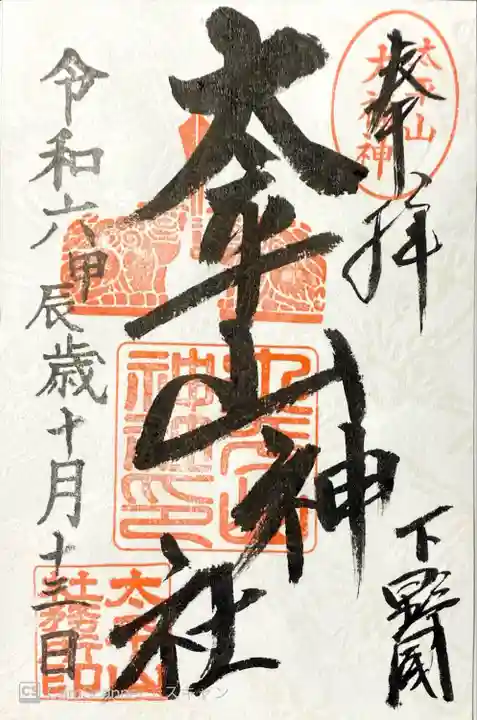 奉拝
太平山
大神神
下野國
太平山神社
太平山
神社印
太平山
社務所印
令和六甲辰歳十月十三日
CS CamScanner でスキャン